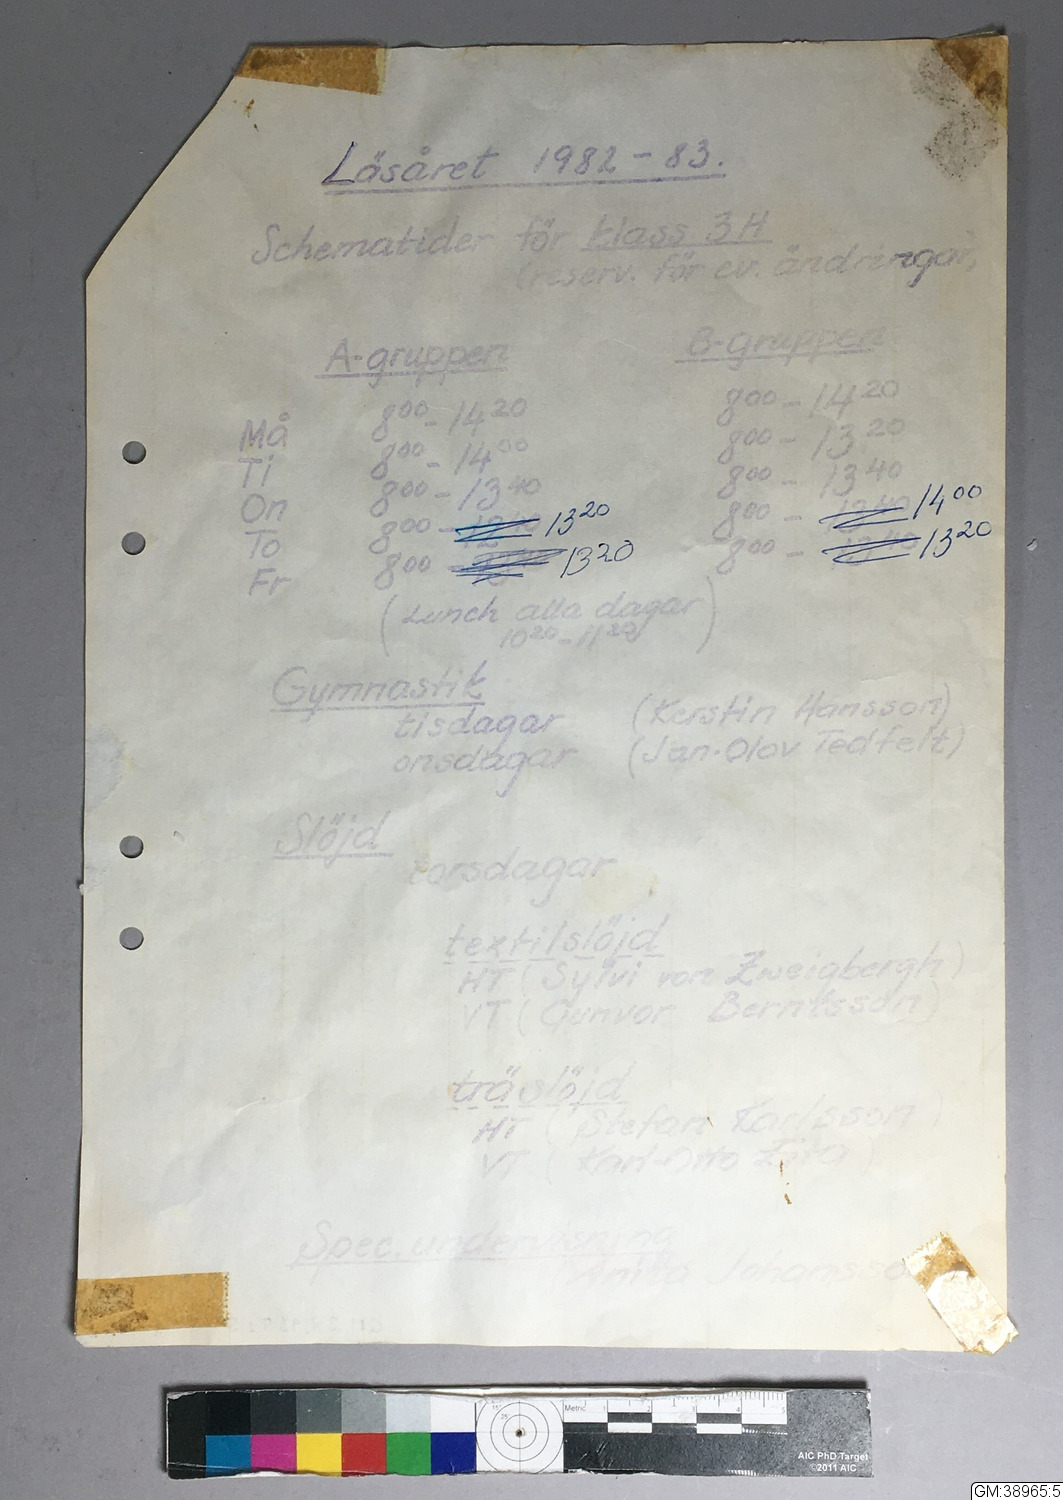 Läsåret 1982-83.
Schematider för klass 3H
(reserv. för ev. ändringar)
A-gruppen B-gruppen
Må 8⁰⁰-14²⁰ 8⁰⁰-14²⁰
Ti 8⁰⁰-14⁰⁰ 8⁰⁰-13²⁰
On 8⁰⁰-13⁴⁰ 8⁰⁰-13⁴⁰
To 8⁰⁰- 13²⁰ 8⁰⁰- 14⁰⁰
Fr 8⁰⁰- 13²⁰ 8⁰⁰- 13²⁰
(Lunch alla dagar
10²⁰-11²⁰)
Gymnastik
tisdagar (Kerstin Hansson)
onsdagar (Jan-Olov Tedfelt)
Slöjd
torsdagar
textilslöjd
HT (Sylvi von Zweigbergh)
VT (Gunvor Berntsson)
träslöjd
HT (Stefan Karlsson)
VT (Karl-Otto
Spec. undervisning
Anita Johansso
Metric 1 2 3 4 5
AIC PhD Target
©2011 AIC
GM:38965:5